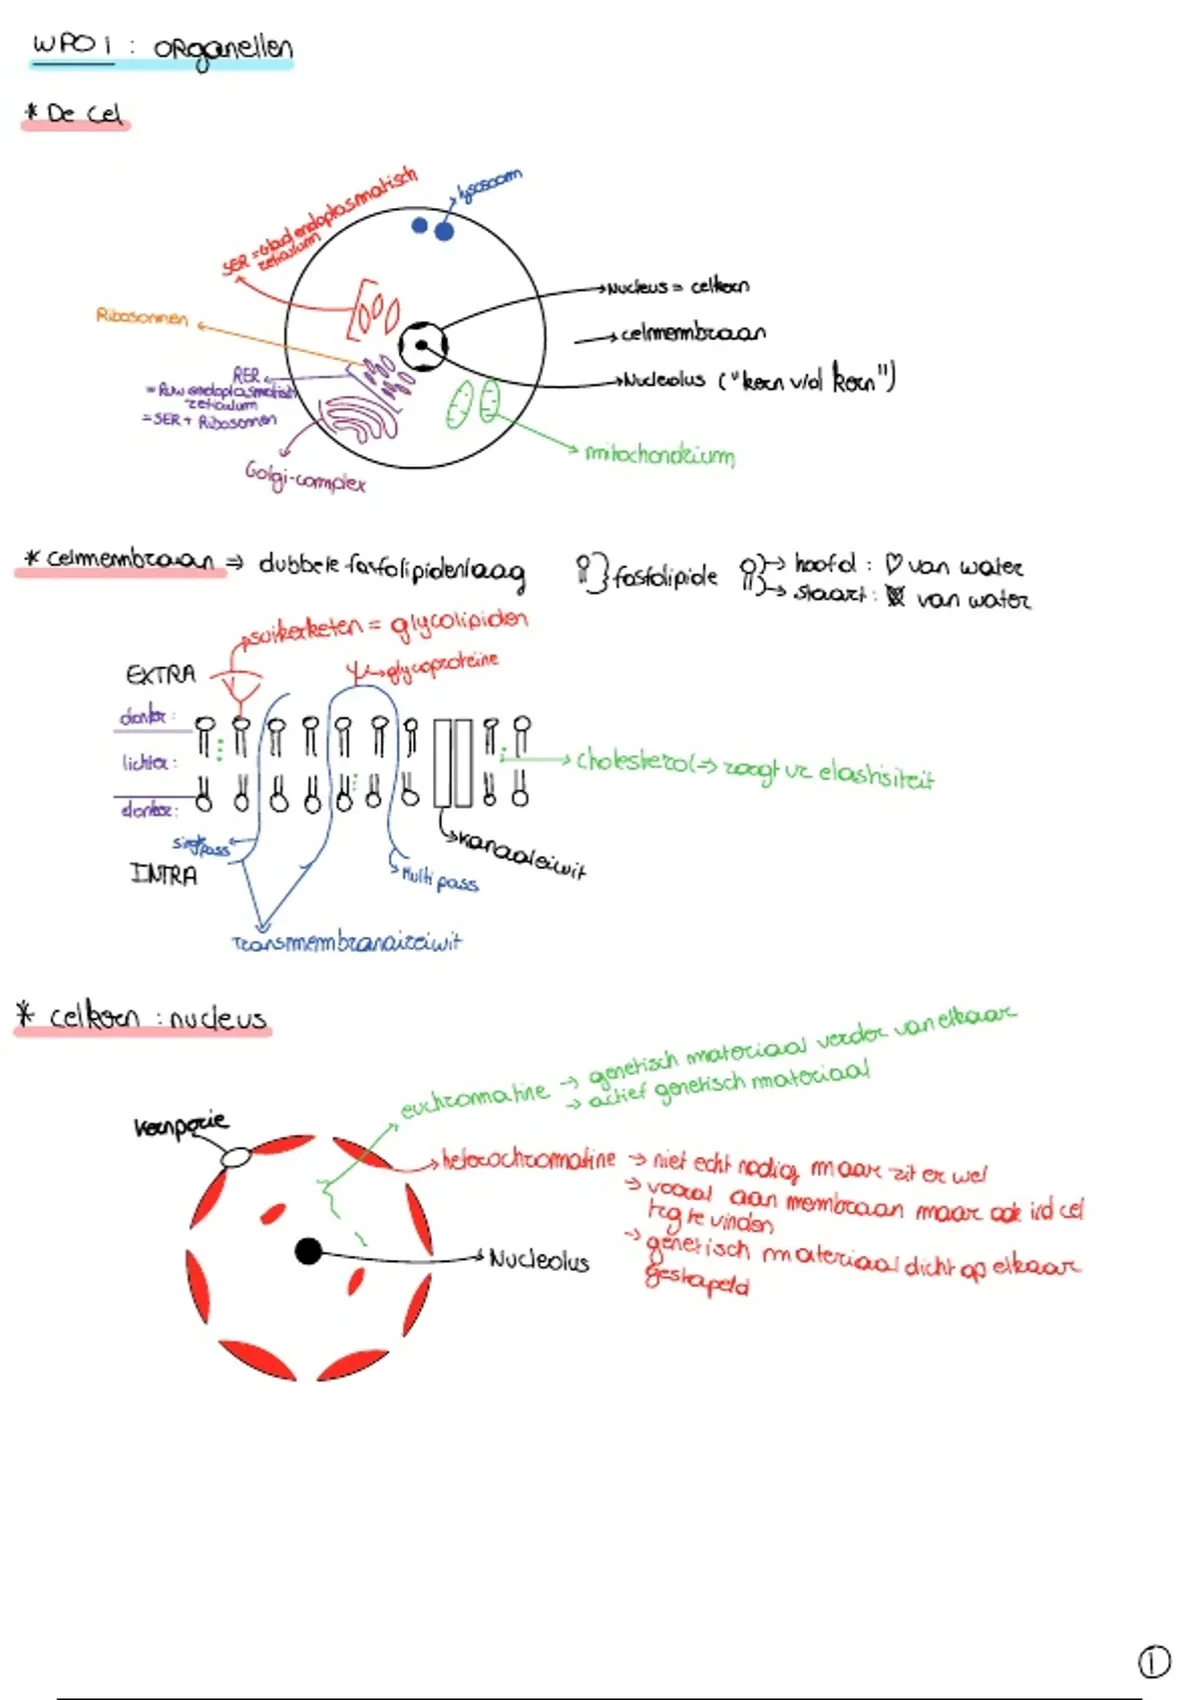 WPO 1 : organellen
* De cel
SER = Glad endoplasmatisch
reticulum
lysosoom
Nucleus = celkern
Ribosomen
celmembraan
RER
= Ruw endoplasmatisch
reticulum
= SER + Ribosomen
Nucleolus ("kern v/d kern")
mitochondrium
Golgi-complex
* celmembraan ⇒ dubbele fosfolipidenlaag
fosfolipide
→ hoofd : ♡ van water
→ staart : van water
suikerketen = glycolipiden
EXTRA
glycoproteïne
donker :
lichter :
donker :
cholesterol ⇒ zorgt vr elastisiteit
single pass
kanaaleiwit
INTRA
Multi pass
Transmembranaireiwit
* celkern : nucleus
euchromatine → genetisch materiaal verder van elkaar
→ actief genetisch materiaal
kernporie
heterochromatine → niet echt nodig maar zit er wel
→ vooral aan membraan maar ook i/d cel
terg te vinden
→ genetisch materiaal dicht op elkaar
gestapeld
Nucleolus
1